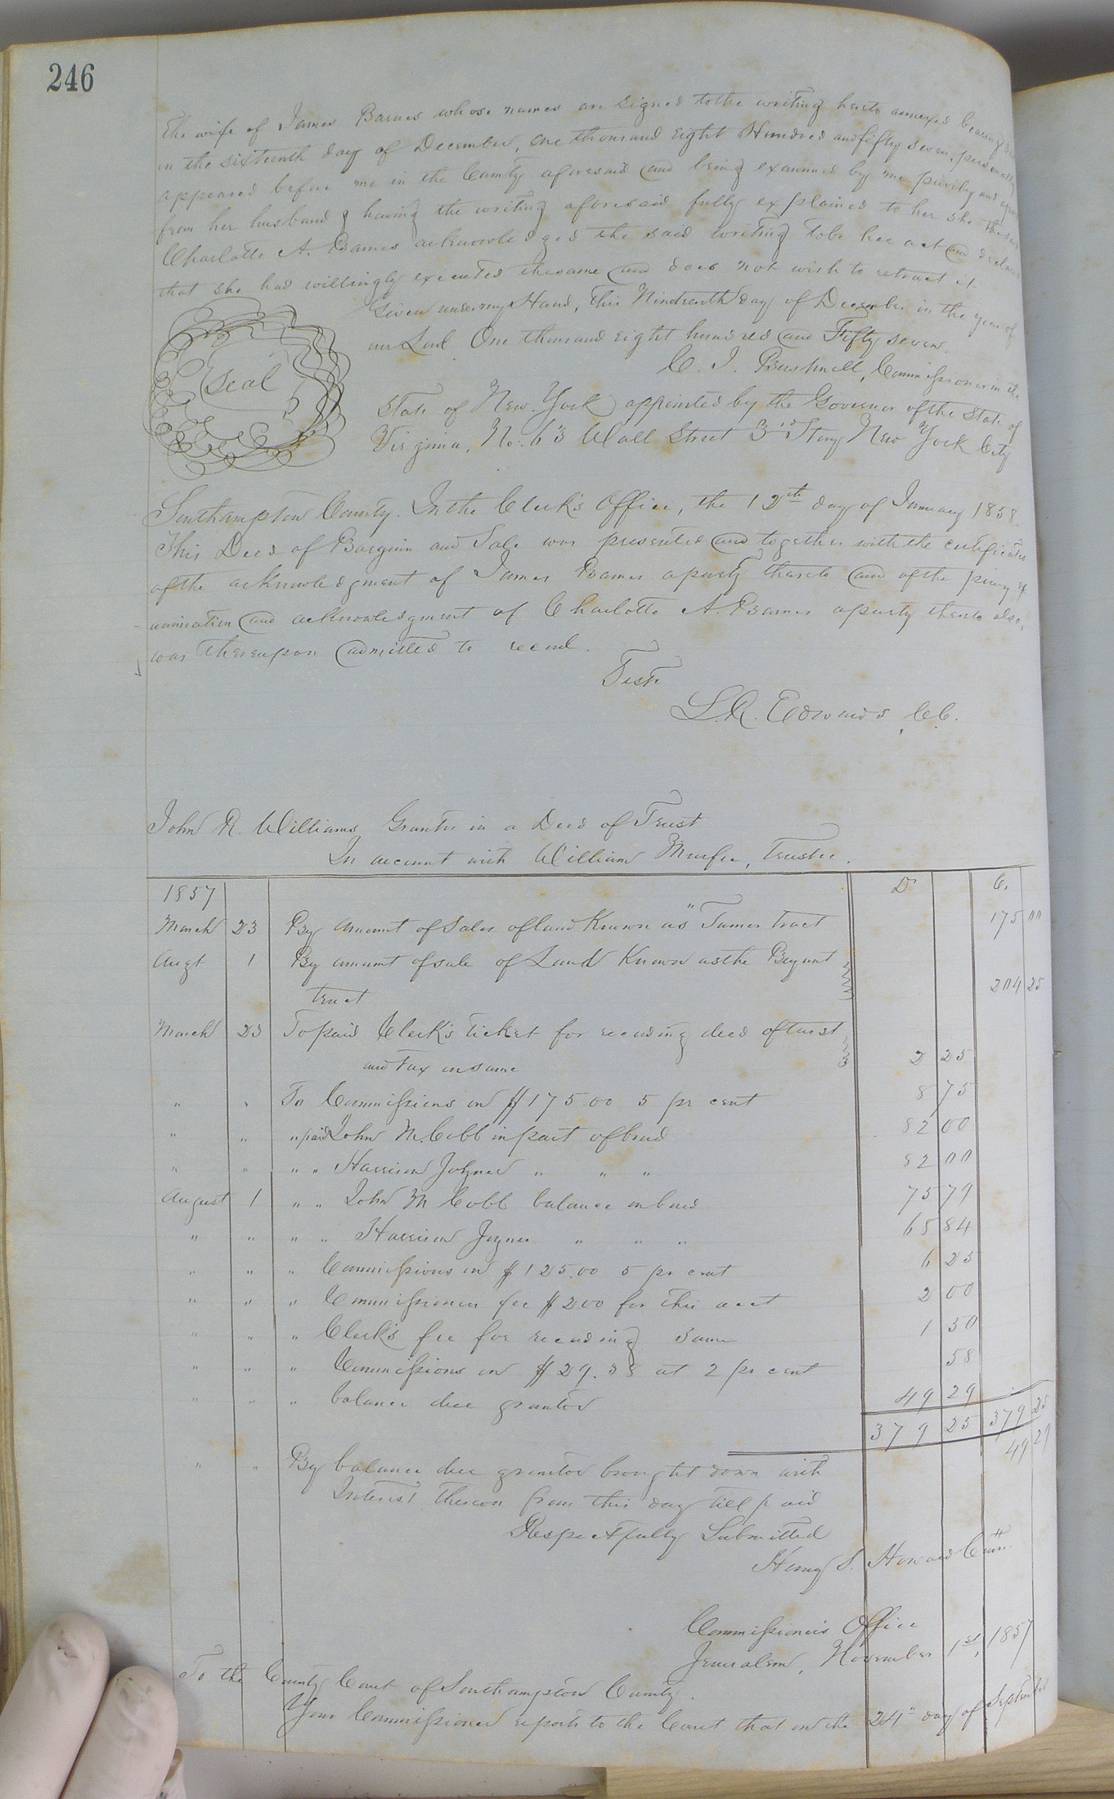 246
the wife of James Barnes whose names are signed to the writing hereto annexed bearing
in the sixteenth day of December, one thousand eight Hundred and fifty seven, personally
appeared before me in the County aforesaid and being examined by me privily and apart
from her husband & having the writing aforesaid fully explained to her she the said
Charlotte A. Barnes acknowledged the said writing to be her act and declared
that she had willingly executed the same and does not wish to retract it.
Given under my Hand, this Nineteenth day of December in the year of
our Lord One thousand eight hundred and Fifty seven.
Seal
C. I. Bushnell, Commissioner in the
State of New York appointed by the Governor of the State of
Virginia, No. 63 Wall Street 3rd Story New York City
Southampton County. In the Clerk's Office, the 12th day of January 1858.
This Deed of Bargain and Sale was presented and together with the certificates
of the acknowledgment of James Barnes a party thereto and of the privy ex
amination and acknowledgment of Charlotte A. Barnes a party thereto also,
was thereupon admitted to record.
Teste
L. R. Edwards, C.C.
John R. Williams Grantor in a Deed of Trust
In account with William Murfee, Trustee.
1857 D C.
March 23 By amount of Sales of land Known as "James tract 175 00
Augt 1 By amount of sale of Land Known as the Bryant
tract 204 25
March 23 To paid Clerk's ticket for recording deed of trust
and Tax on same 2 25
" " To Commissions on $175 00 5 pr cent 8 75
" " " paid John M. Cobb in part of bond 82 00
" " " " Harrison Joyner " " " 82 00
August 1 " " John M Cobb balance on bond 75 79
" " " " Harrison Joyner " " " 65 84
" " " Commissions on $125.00 5 pr cent 6 25
" " " Commissioner fee $2.00 for this acct 2 00
" " " Clerk's fee for recording same 1 50
" " " Commissions on $29.28 at 2 pr cent 58
" " " balance due grantor 49 29
379 25 379 25
" " By balance due grantor brought down with 49 29
Interest thereon from this day till paid
Respectfully Submitted
Henry S. Howard Comr.
Commissioner's Office
Jerusalem, November 1st, 1857
To the County Court of Southampton County.
Your Commissioner reports to the Court that on the 24th day of September